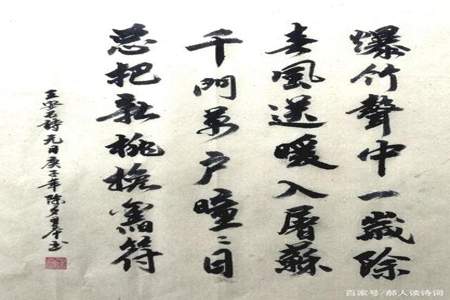 爆竹聲中一歲除
春風送暖入屠蘇
千門萬户曈々日
總把新桃換舊符
王安石詩元日庚子年陳
百家号/郝人读诗词